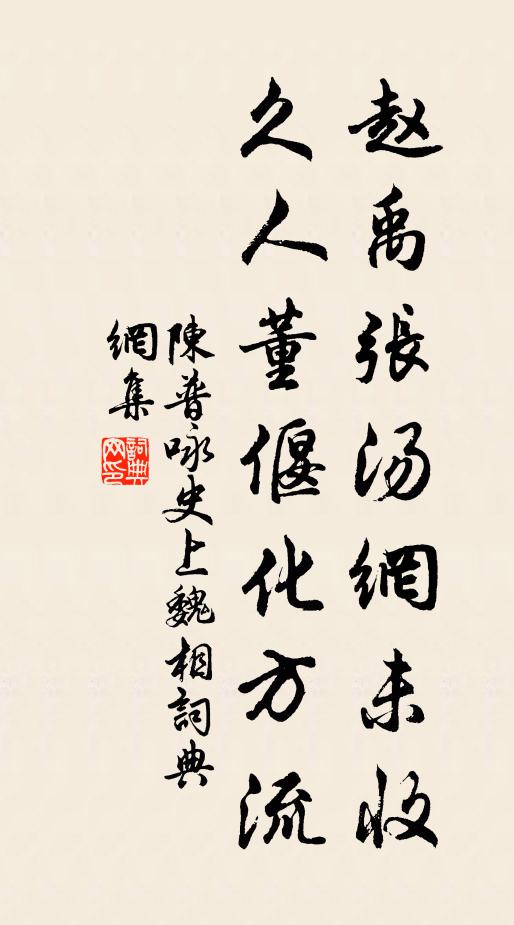 赵禹張汤網未收
久人董偃化方流
陳普咏史上魏相詞典
網集
詞典
网印